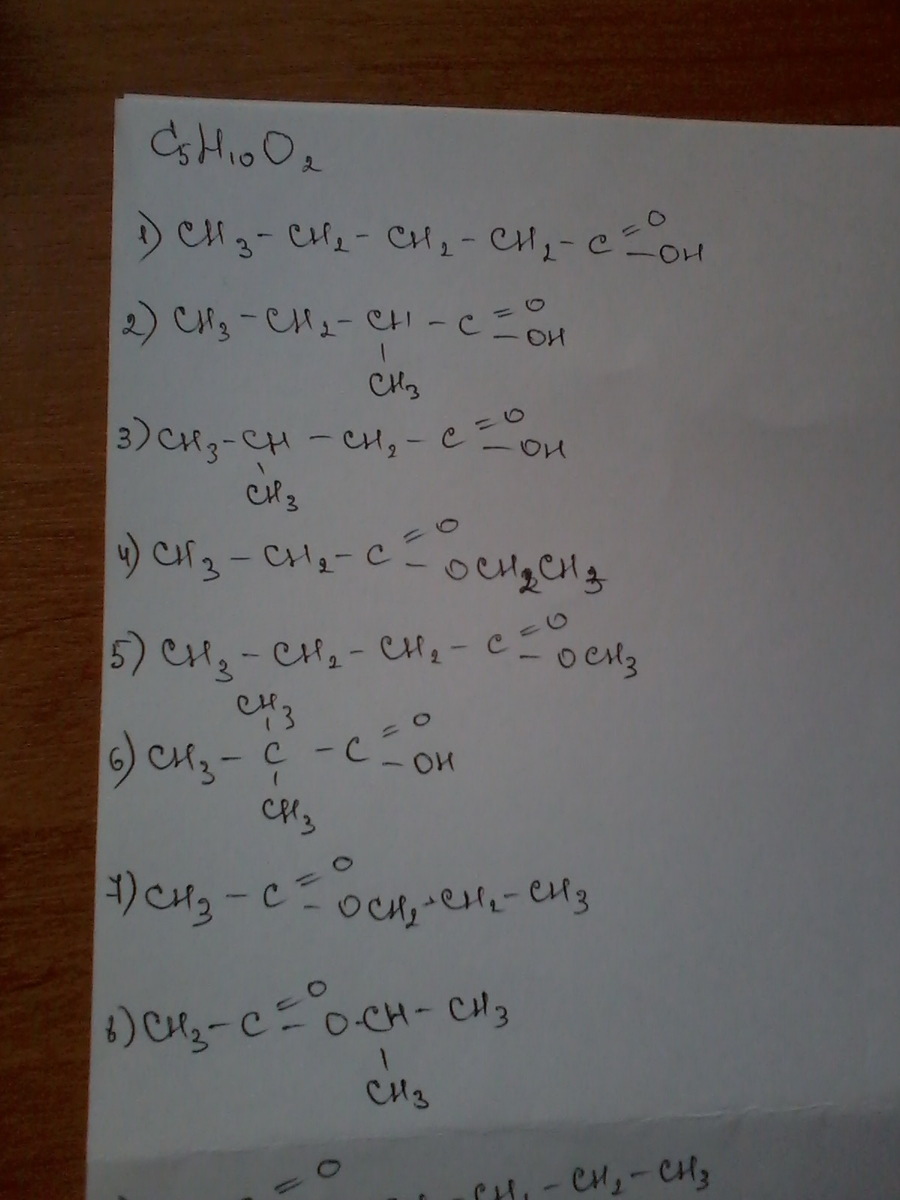 C5H10O2
1) CH3 - CH2 - CH2 - CH2 - C =O -OH
2) CH3 - CH2 - CH - C =O -OH
CH3
3) CH3 - CH - CH2 - C =O -OH
CH3
4) CH3 - CH2 - C =O - OCH2CH3
5) CH3 - CH2 - CH2 - C =O - OCH3
CH3
6) CH3 - C - C =O - OH
CH3
7) CH3 - C =O - OCH2-CH2-CH3
8) CH3 - C =O - O-CH - CH3
CH3
=O - CH2 - CH3